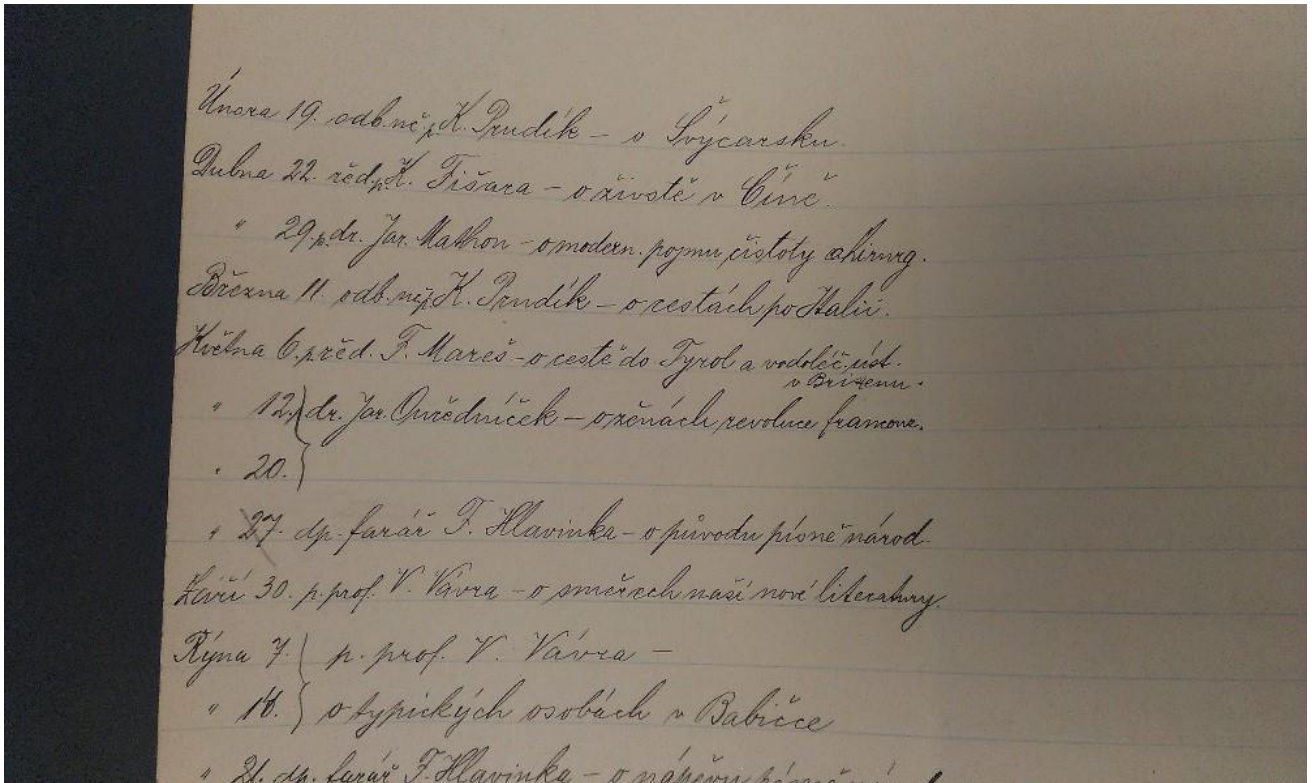 Února 19. odb. uč. p. K. Prudík – o Švýcarsku.
Dubna 22. řed. p. K. Fišara – o životě v Číně.
" 29. p. dr. Jar. Mathon – o modern. pojmu čistoty chirurg.
Března 11. odb. uč. p. K. Prudík – o cestách po Italii.
Května 6. p. řed. F. Mareš – o cestě do Tyrol a vodoléč. úst.
v Brixenu.
" 12. } dr. Jar. Ouředníček – o ženách revoluce francouz.
" 20. }
" 27. dp. farář F. Hlavinka – o původu písně národ.
Září 30. p. prof. V. Vávra – o směrech naší nové literatury.
Října 7. } p. prof. V. Vávra –
" 14. } o typických osobách v Babičce
" 21. dp. farář F. Hlavinka – o nápěvu písně